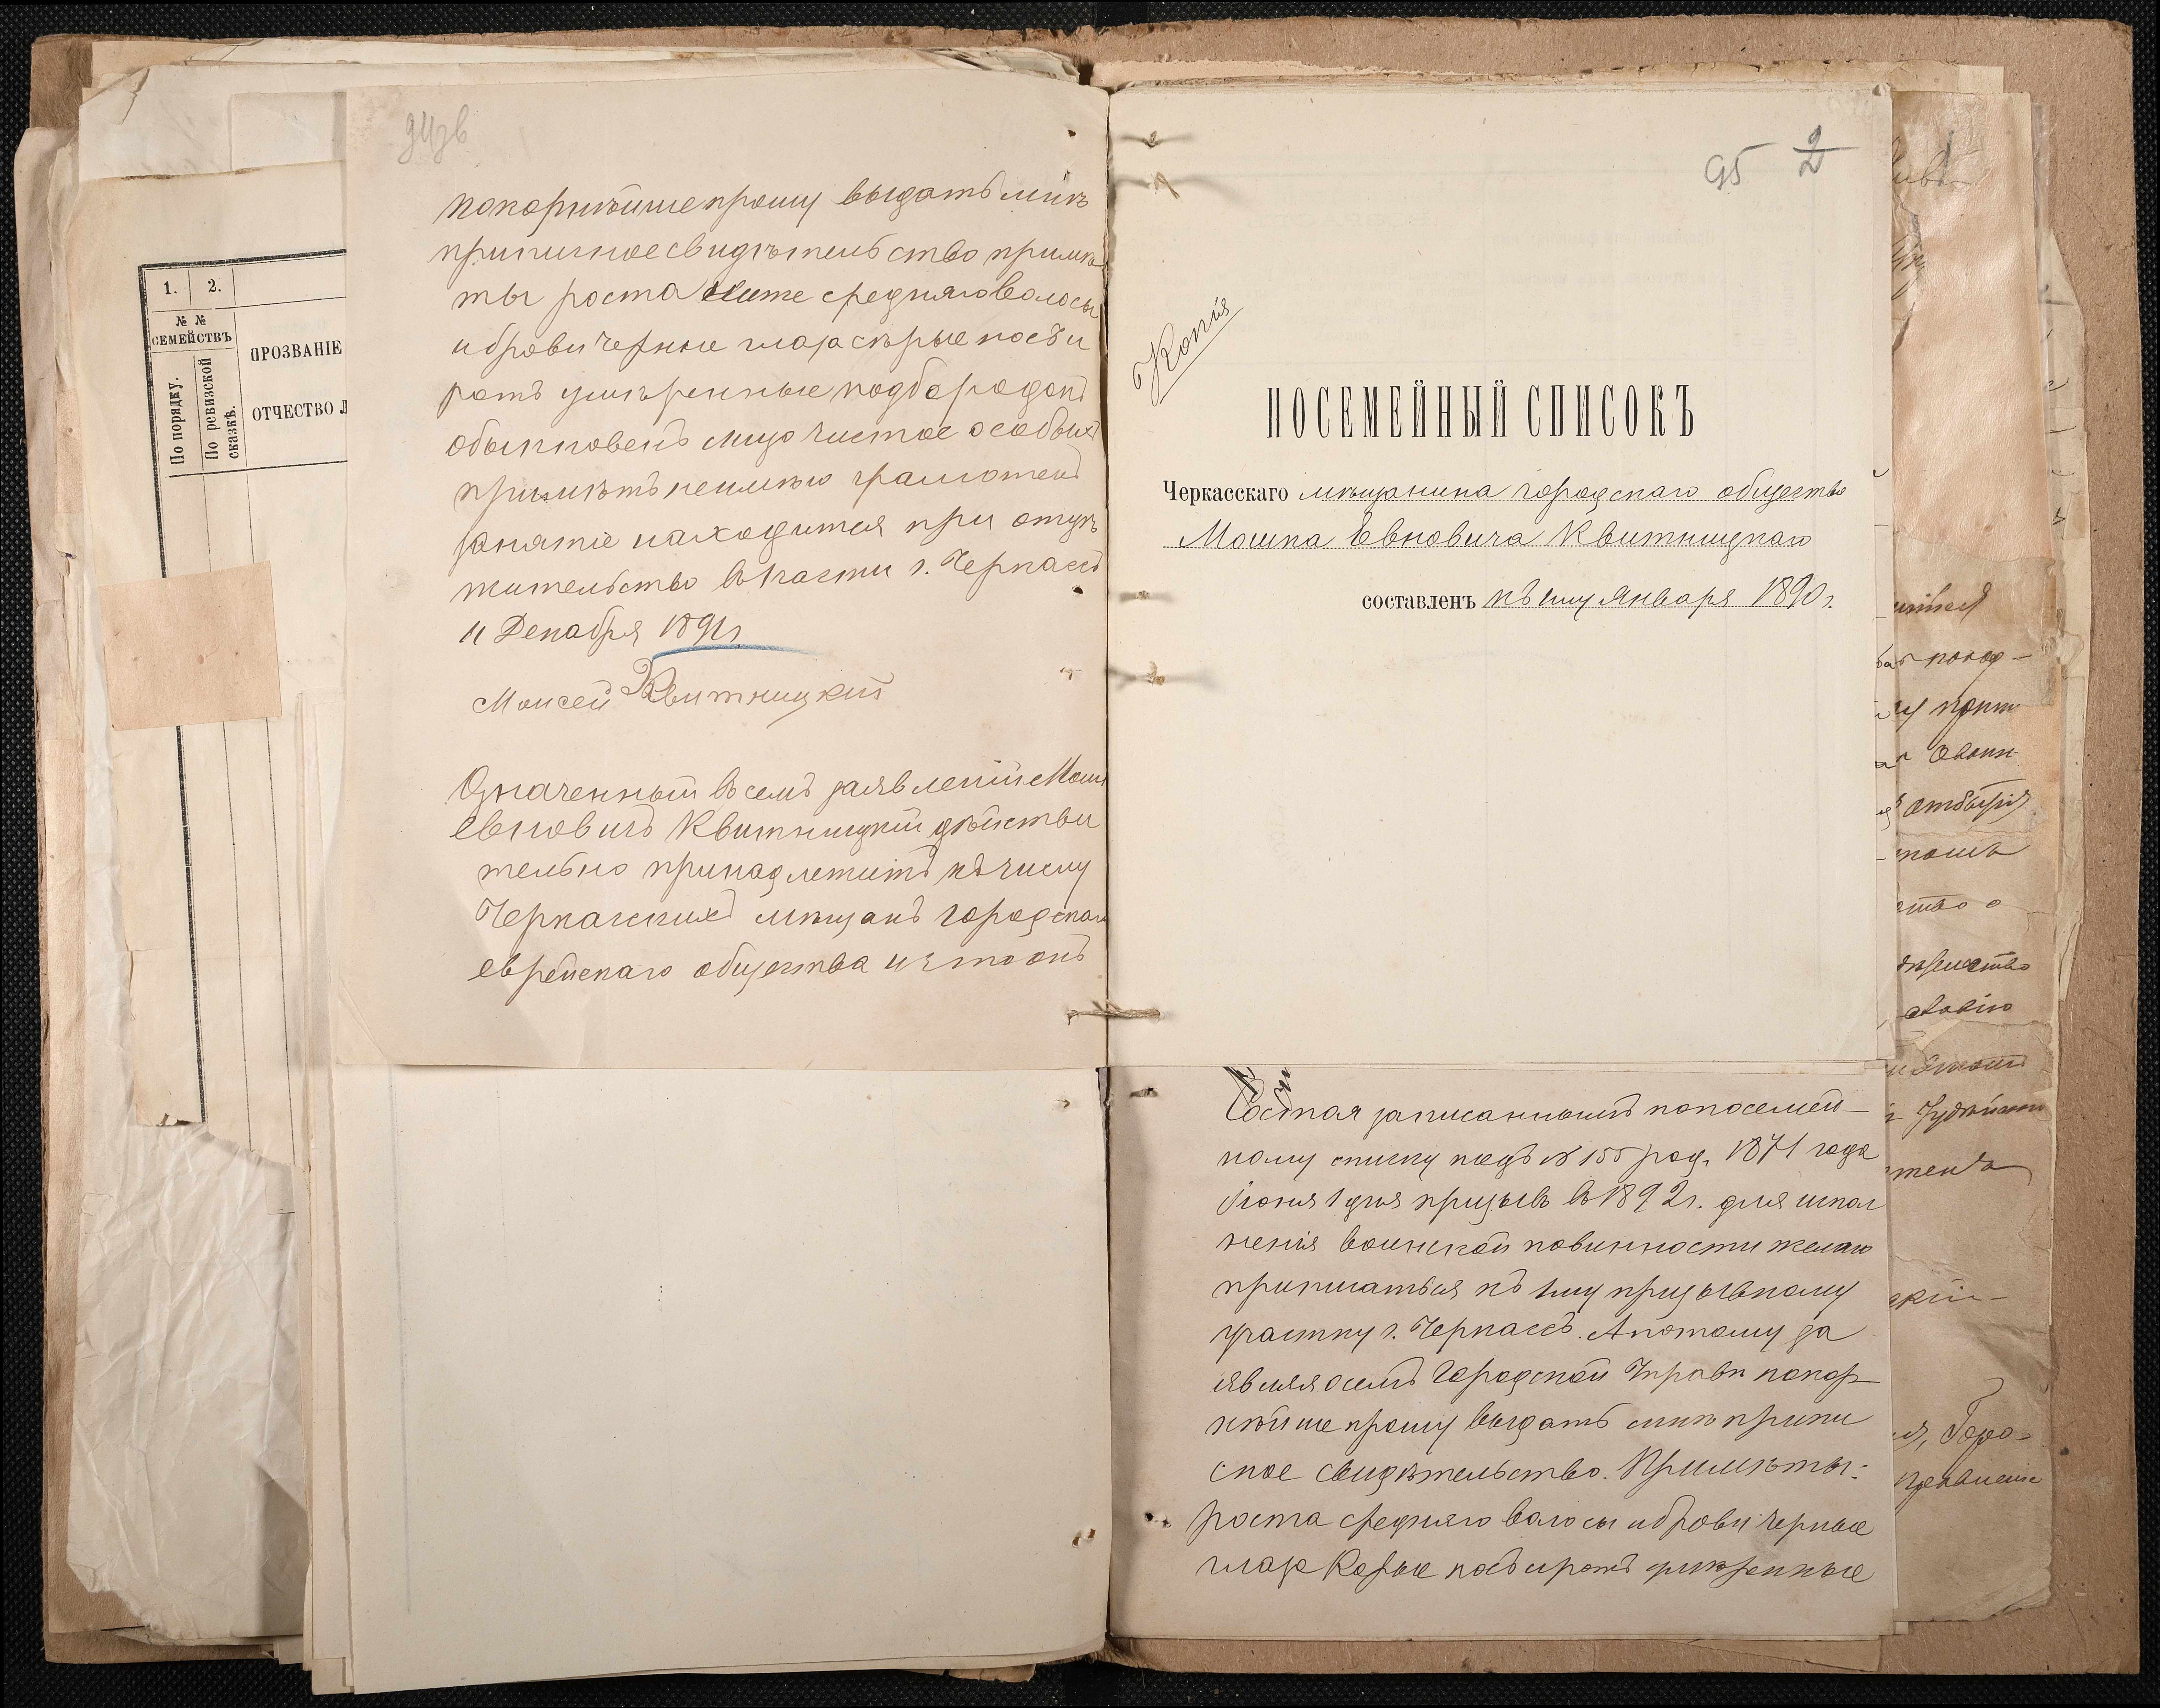 94 зв
покорнѣйше прошу выдать мнѣ
приписное свидѣтельство примѣ
ты роста ниже средняго волосы
и брови черные глаза сѣрые носъ и
ротъ умѣренные подбородокъ
обыкновенъ лицо чистое особыхъ
примѣтъ неимѣю грамотенъ
занятіе находится при отцѣ
жительство въ части г. Черкассъ
11 Декабря 1891 г.
Моисей Квитницкій
Означенный въ семъ заявленіи Мош
Евновичъ Квитницкій дѣйстви
тельно принадлежитъ къ числу
Черкасскихъ мѣщанъ городскаго
еврейскаго общества и что онъ
1. 2.
№ №
СЕМЕЙСТВЪ
По порядку.
По ревизской
сказкѣ.
ПРОЗВАНІЕ
ОТЧЕСТВО
95 2
Копія
ПОСЕМЕЙНЫЙ СПИСОКЪ
Черкасскаго мѣщанина городскаго общества
Мошка Евновича Квитницкаго
составленъ къ 1му января 1890 г.
Состоя записаннымъ попосемей-
ному списку подъ № 155 род. 1871 года
Іюня 1 дня призывъ въ 1892 г. для испол
ненія воинской повинности желаю
приписаться къ 1му призывному
участку г. Черкассъ. А потому за
являя о семъ Городской Управѣ покор-
нѣйше прошу выдать мнѣ припи
сное свидѣтельство. Примѣты:
роста средняго волосы и брови черные
глаза Карые носъ и ротъ умѣренные
отбытія
ство о